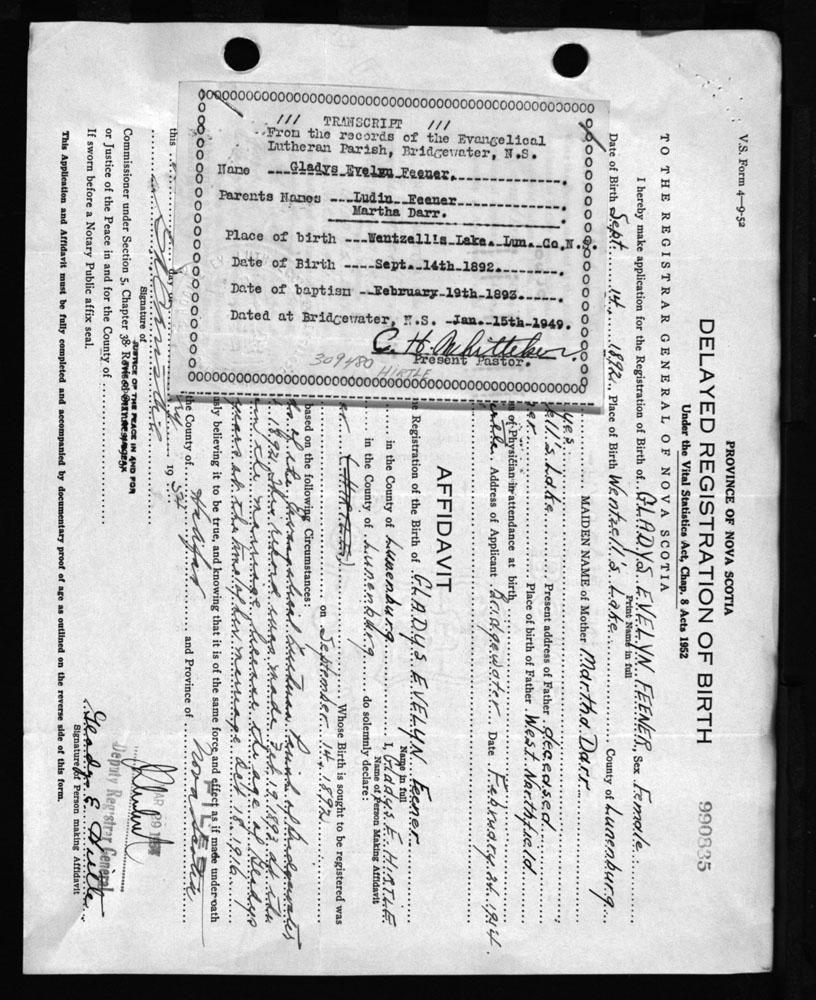 V.S. Form 4—9-52
PROVINCE OF NOVA SCOTIA
DELAYED REGISTRATION OF BIRTH 990835
Under the Vital Statistics Act, Chap. 8 Acts 1952
TO THE REGISTRAR GENERAL OF NOVA SCOTIA
I hereby make application for the Registration of Birth of GLADYS EVELYN FEENER, Sex Female
Print Name in full
Date of Birth Sept. 14, 1892 Place of Birth Wentzell's Lake County of Lunenburg
MAIDEN NAME of Mother Martha Darr
ell's Lake Present address of Father deceased
Place of birth of Father West Northfield
of Physician in attendance at birth
Address of Applicant Bridgewater Date February 26, 1954
AFFIDAVIT
Registration of the Birth of GLADYS EVELYN Feener
Name in full
in the County of Lunenburg I, Gladys E. HIRTLE
Name of Person Making Affidavit
in the County of Lunenburg do solemnly declare:
(HIRTLE) Whose Birth is sought to be registered was
on September 14, 1892
based on the following Circumstances:
of the Evangelical Lutheran Parish of Bridgewater
1892. This record was made Feb. 19, 1893 at the
and the marriage license the age of Gladys
years at the time of her marriage Oct 18, 1916
usly believing it to be true, and knowing that it is of the same force and effect as if made under oath
the County of Halifax and Province of Nova Scotia
this day of 19
Signature of
Commissioner under Section 5, Chapter 38 Revised
JUSTICE OF THE PEACE IN AND FOR
or Justice of the Peace in and for the County of
If sworn before a Notary Public affix seal.
FILED
MAR 29
Deputy Registrar General
Gladys E. Hirtle
Signature of Person making Affidavit
This Application and Affidavit must be fully completed and accompanied by documentary proof of age as outlined on the reverse side of this form.
/// TRANSCRIPT ///
From the records of the Evangelical
Lutheran Parish, Bridgewater, N.S.
Name Gladys Evelyn Feener.
Parents Names Ludin Feener
Martha Darr.
Place of birth Wentzell's Lake. Lun. Co.N.S.
Date of Birth Sept. 14th 1892.
Date of baptism February 19th 1893.
Dated at Bridgewater, N.S. Jan. 15th 1949.
C. H. Whitteker.
Present Pastor.
309480 HIRTLE